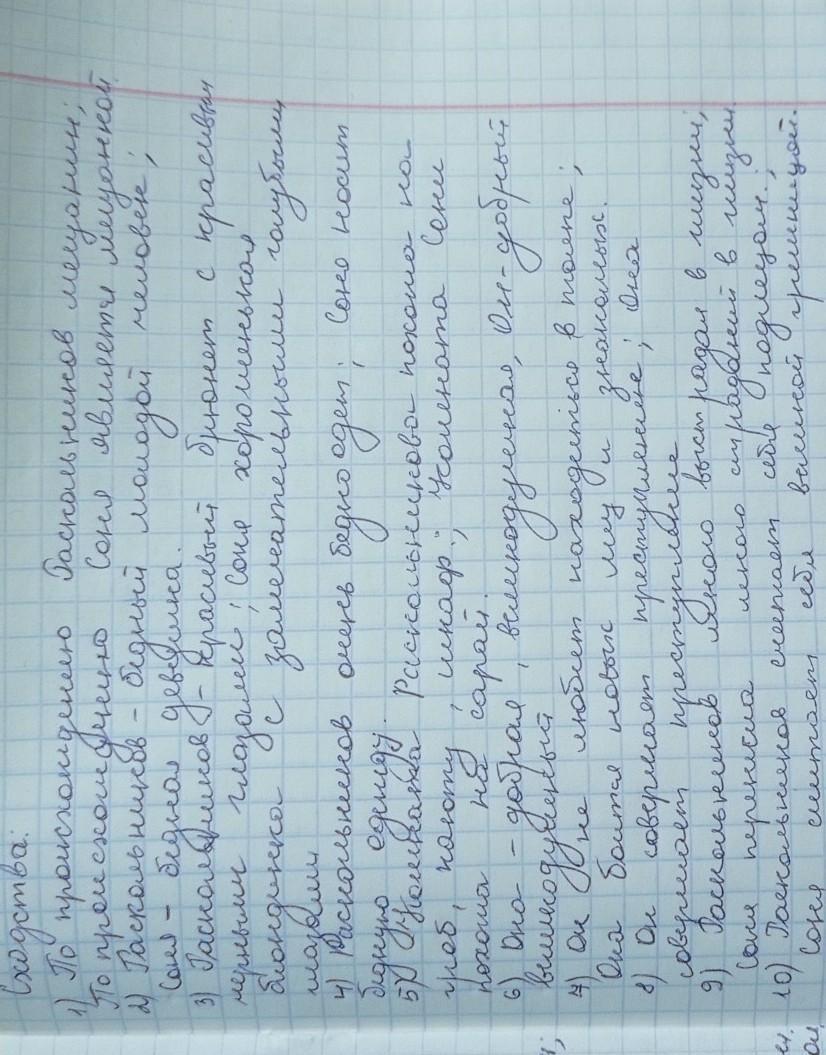 Сходства:
1) По происхождению Раскольников мещанин;
По происхождению Соня является мещанкой.
2) Раскольников - бедный молодой человек;
Соня - бедная девушка.
3) Раскольников - красивый брюнет с красивыми
черными глазами; Соня хорошенькая
блондинка с замечательными голубыми
глазами
4) Раскольников очень бедно одет; Соня носит
бедную одежду.
5) Комната Раскольникова похожа на
гроб, каюту, шкаф; Комната Сони
похожа на сарай.
6) Она - добрая, великодушная, Он - добрый
великодушный
7) Он не любит находиться в толпе;
Она боится новых лиц и знакомых.
8) Он совершает преступление; Она
совершает преступление
9) Раскольников много выстрадал в жизни;
Соня перенесла много страданий в жизни
10) Раскольников считает себя подлецом;
Соня считает себя великой грешницей.